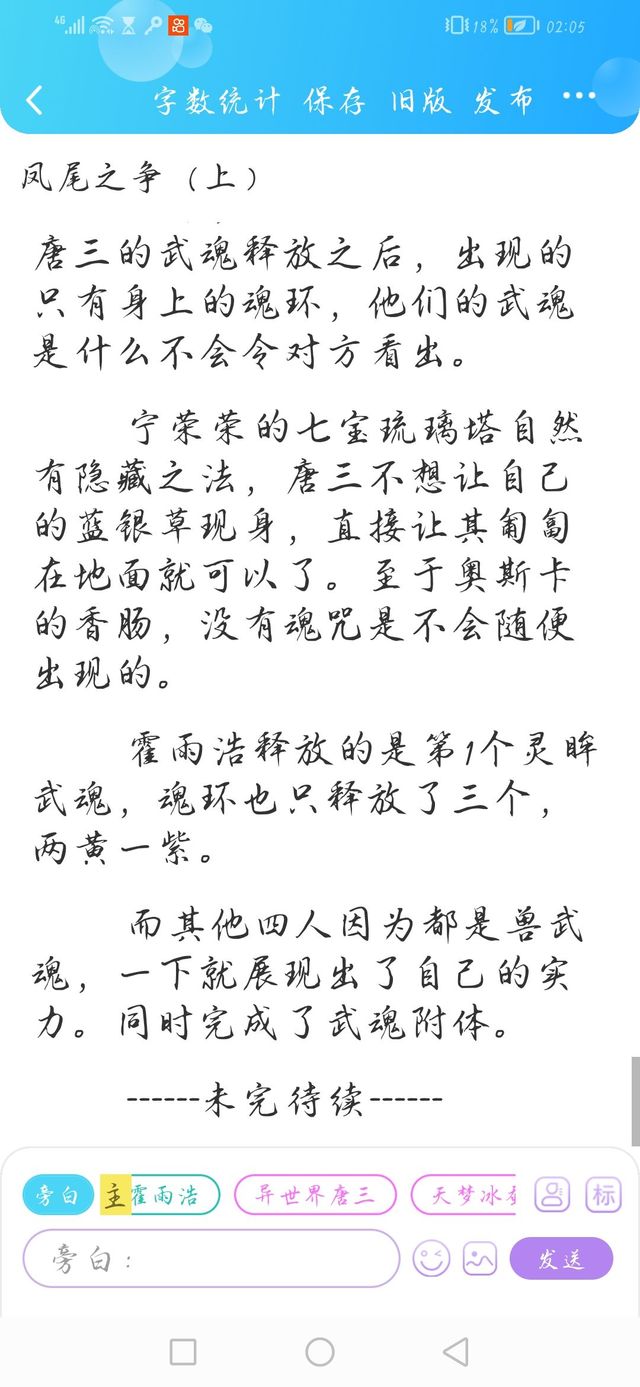 4G 18% 02:05
字数统计 保存 旧版 发布 ···
凤尾之争（上）
唐三的武魂释放之后，出现的
只有身上的魂环，他们的武魂
是什么不会令对方看出。
宁荣荣的七宝琉璃塔自然
有隐藏之法，唐三不想让自己
的蓝银草现身，直接让其匍匐
在地面就可以了。至于奥斯卡
的香肠，没有魂咒是不会随便
出现的。
霍雨浩释放的是第1个灵眸
武魂，魂环也只释放了三个，
两黄一紫。
而其他四人因为都是兽武
魂，一下就展现出了自己的实
力。同时完成了武魂附体。
------未完待续------
旁白 主 霍雨浩 异世界唐三 天梦冰 标
旁白： 发送